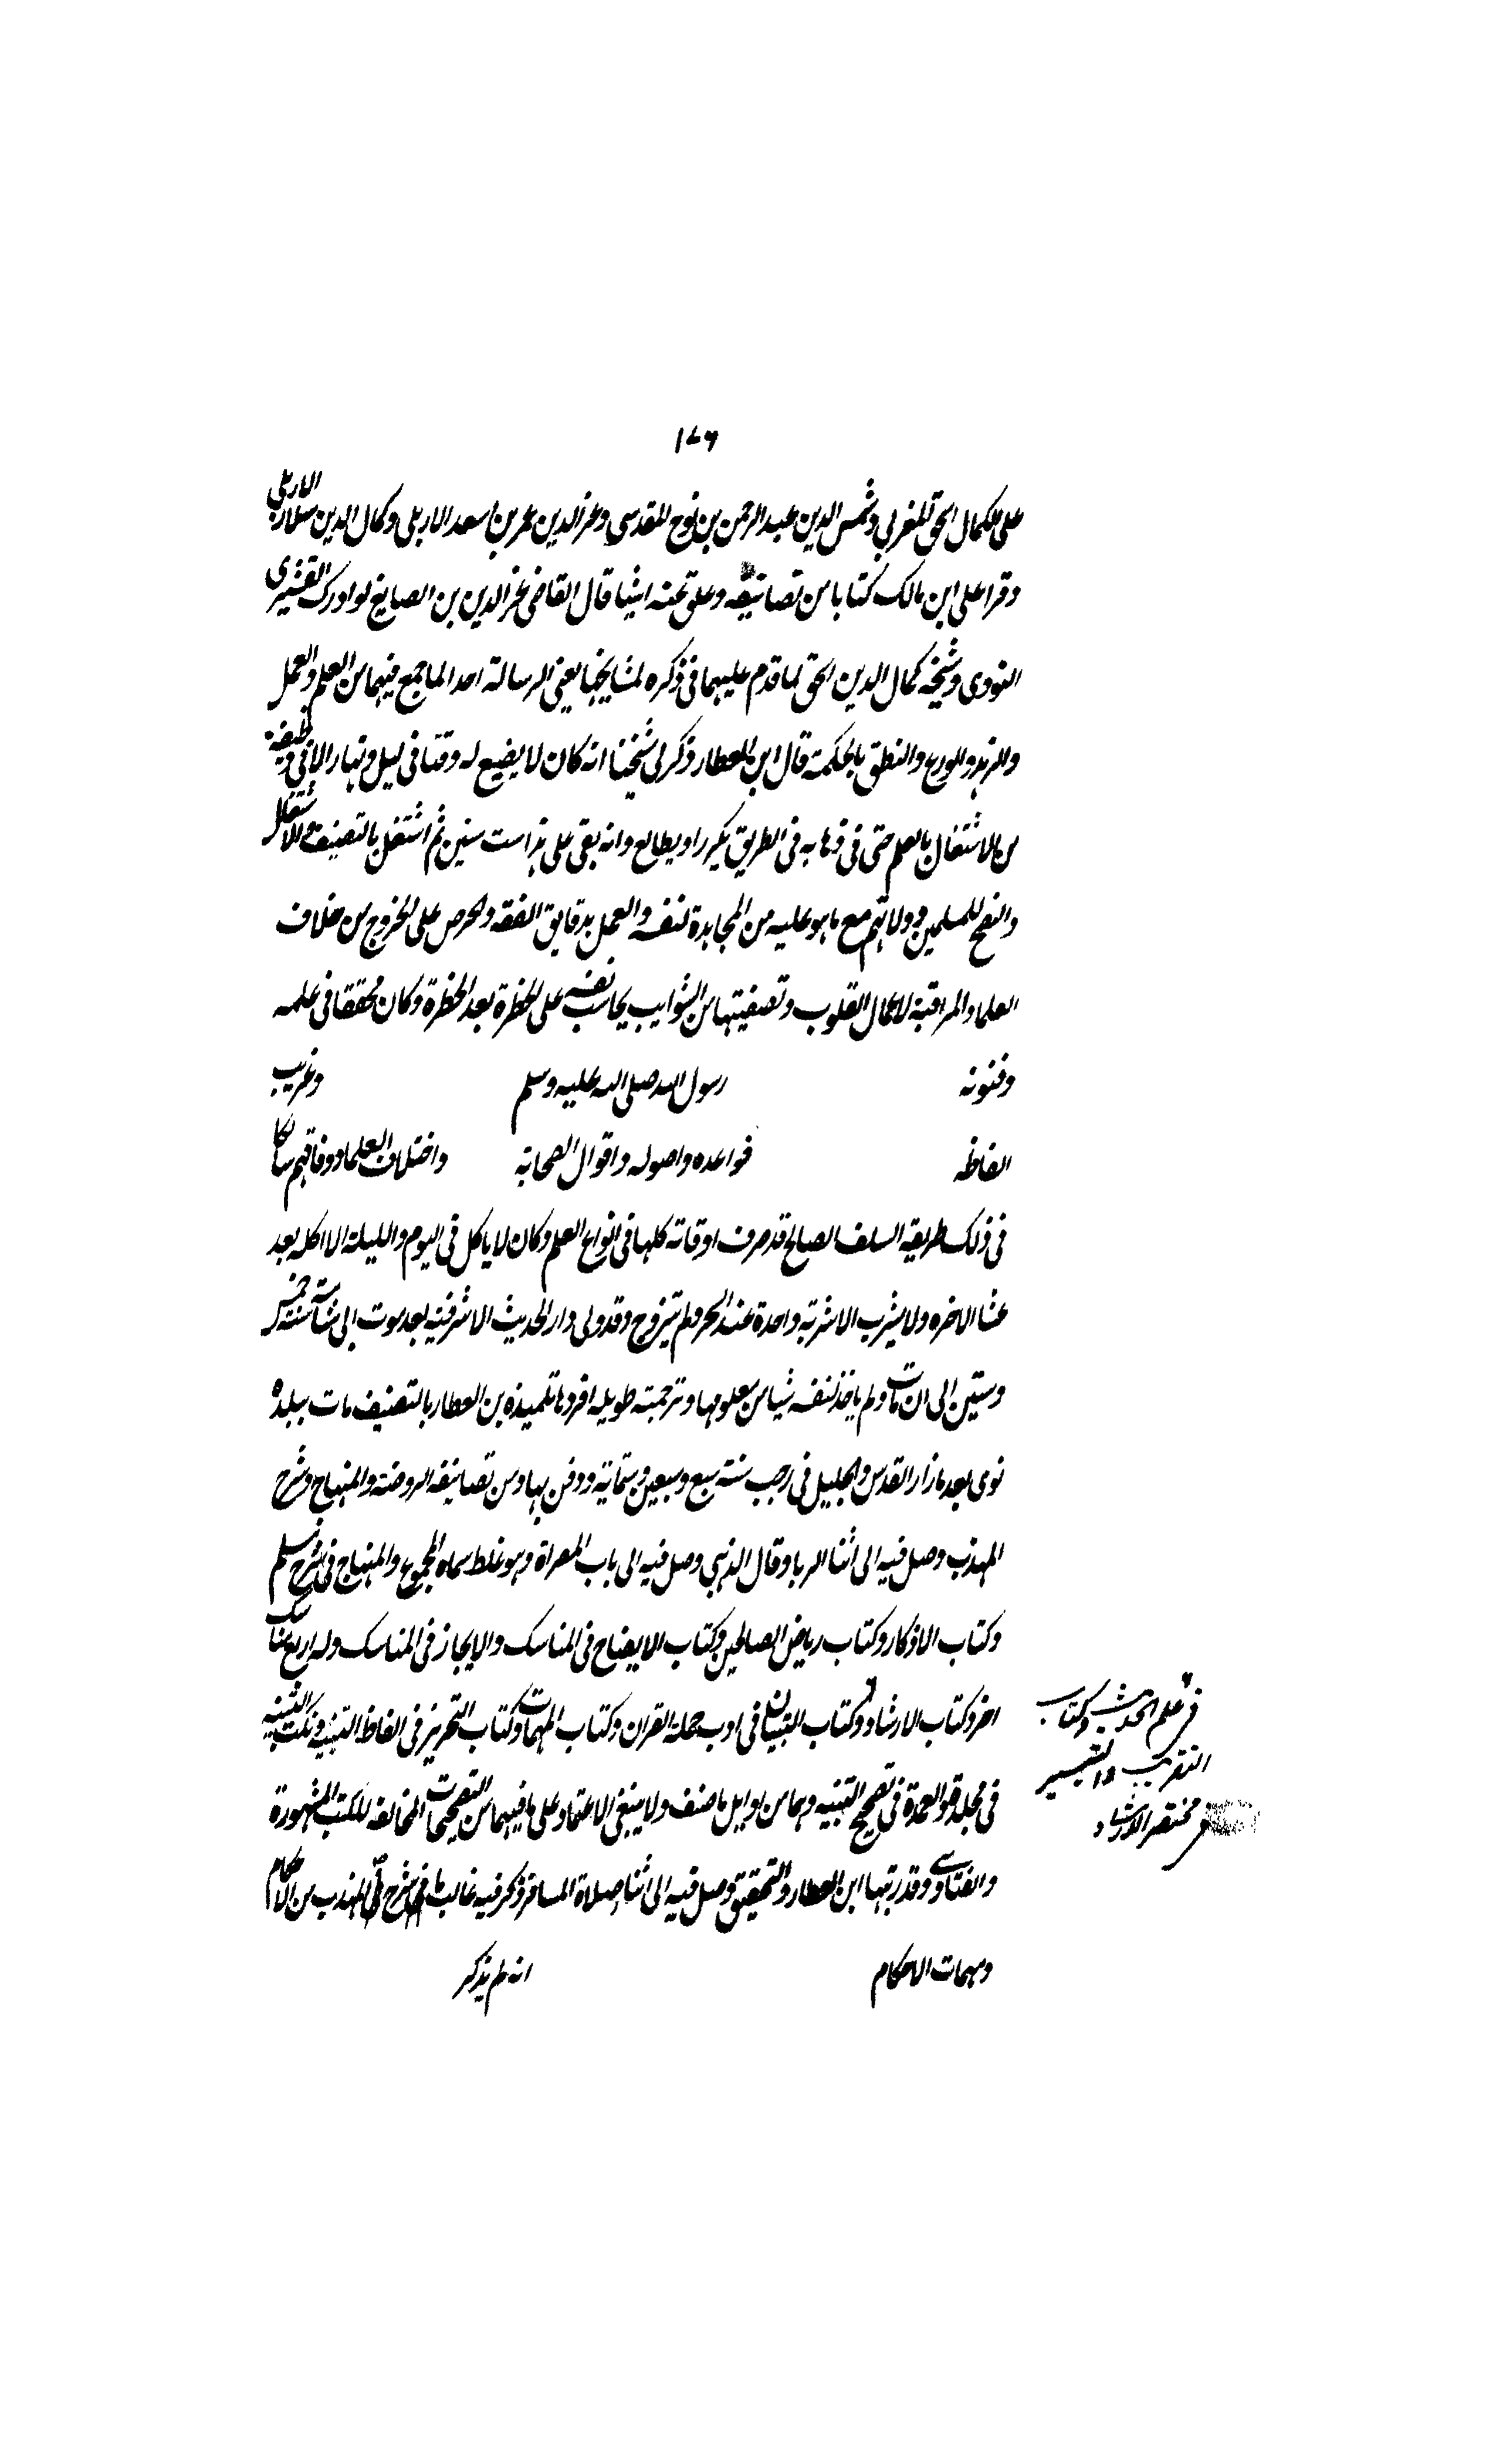 ١٧٦
على الكمال اسحق المغربي وشمس الدين عبد الرحمن بن نوح المقدسي وعز الدين عمر بن اسعد الاربلي وكمال الدين سلار الاربلي
وقرا على ابن مالك كتابا من تصانيفه وعلق عنه اشيا قال القاضي عز الدين بن الصايغ لو ادرك القشيري
النووي وشيخه كمال الدين اسحق لما قدم عليهما في ذكره لمشايخها يعني الرسالة احدا لما جمع فيهما من العلم والعمل
والزهد والورع والنطق بالحكمة قال ابن العطار ذكر لي شيخنا انه كان لا يضيع له وقتا في ليل ونهار الا في وظيفة
من الاشتغال بالعلم حتى في ذهابه في الطريق يكرر او يطالع وانه بقي على هذا ست سنين ثم اشتغل بالتصنيف والاشتغال
والنصح للمسلمين وولاتهم مع ما هو عليه من المجاهدة لنفسه والعمل بدقايق الفقه والحرص على الخروج من خلاف
العلما والمراقبة لاعمال القلوب وتصفيتها من الشوايب يحاسب نفسه على الخطرة بعد الخطرة وكان محققا في علمه
وفنونه رسول الله صلى الله عليه وسلم وغريب
الفاظه قواعده واصوله واقوال الصحابة واختلاف العلما ووفاقهم سالكا
في ذلك طريقة السلف الصالح قد صرف اوقاته كلها في انواع العلم وكان لا ياكل في اليوم والليلة الا اكله بعد
عشا الاخره ولا يشرب الا شربة واحدة عند السحر ولم يتزوج وقد ولى دار الحديث الاشرفية بعد موت ابي شامة سنة خمس
وستين الى ان مات ولم ياخذ لنفسه شيا من معلومها وترجمته طويله افردها تلميذه بن العطار بالتصنيف مات ببلده
نوى بعد ما زار القدس والخليل في رجب سنة سبع وسبعين وستماية ودفن بها ومن تصانيفه الروضة والمنهاج وشرح
المهذب وصل فيه الى اثنا الربا وقال الذهبي وصل فيه الى باب المصراة وهو غلط سماه المجموع والمنهاج في شرح مسلم
وكتاب الاذكار وكتاب رياض الصالحين وكتاب الايضاح في المناسك والايجاز في المناسك وله اربع مناسك
اخر وكتاب الارشاد وكتاب التبيان في ادب حملة القران وكتاب المهمات وكتاب التحرير في الفاظ التنبيه ونكت التنبيه
في علم الحديث وكتاب
التقريب والتيسير
في مختصر الارشاد
في مجلد والعمدة في تصحيح التنبيه وهما من اوايل ما صنف ولا ينبغي الاعتماد على ما فيهما من التصحيحات المخالفه للكتب المشهورة
والفتاوى وقد رتبها ابن العطار والتحقيق وصل فيه الى اثنا صلاة المسافر ذكر فيه غالب ما في شرح المهذب من الاحكام
ومهمات الاحكام انه لم يذكر